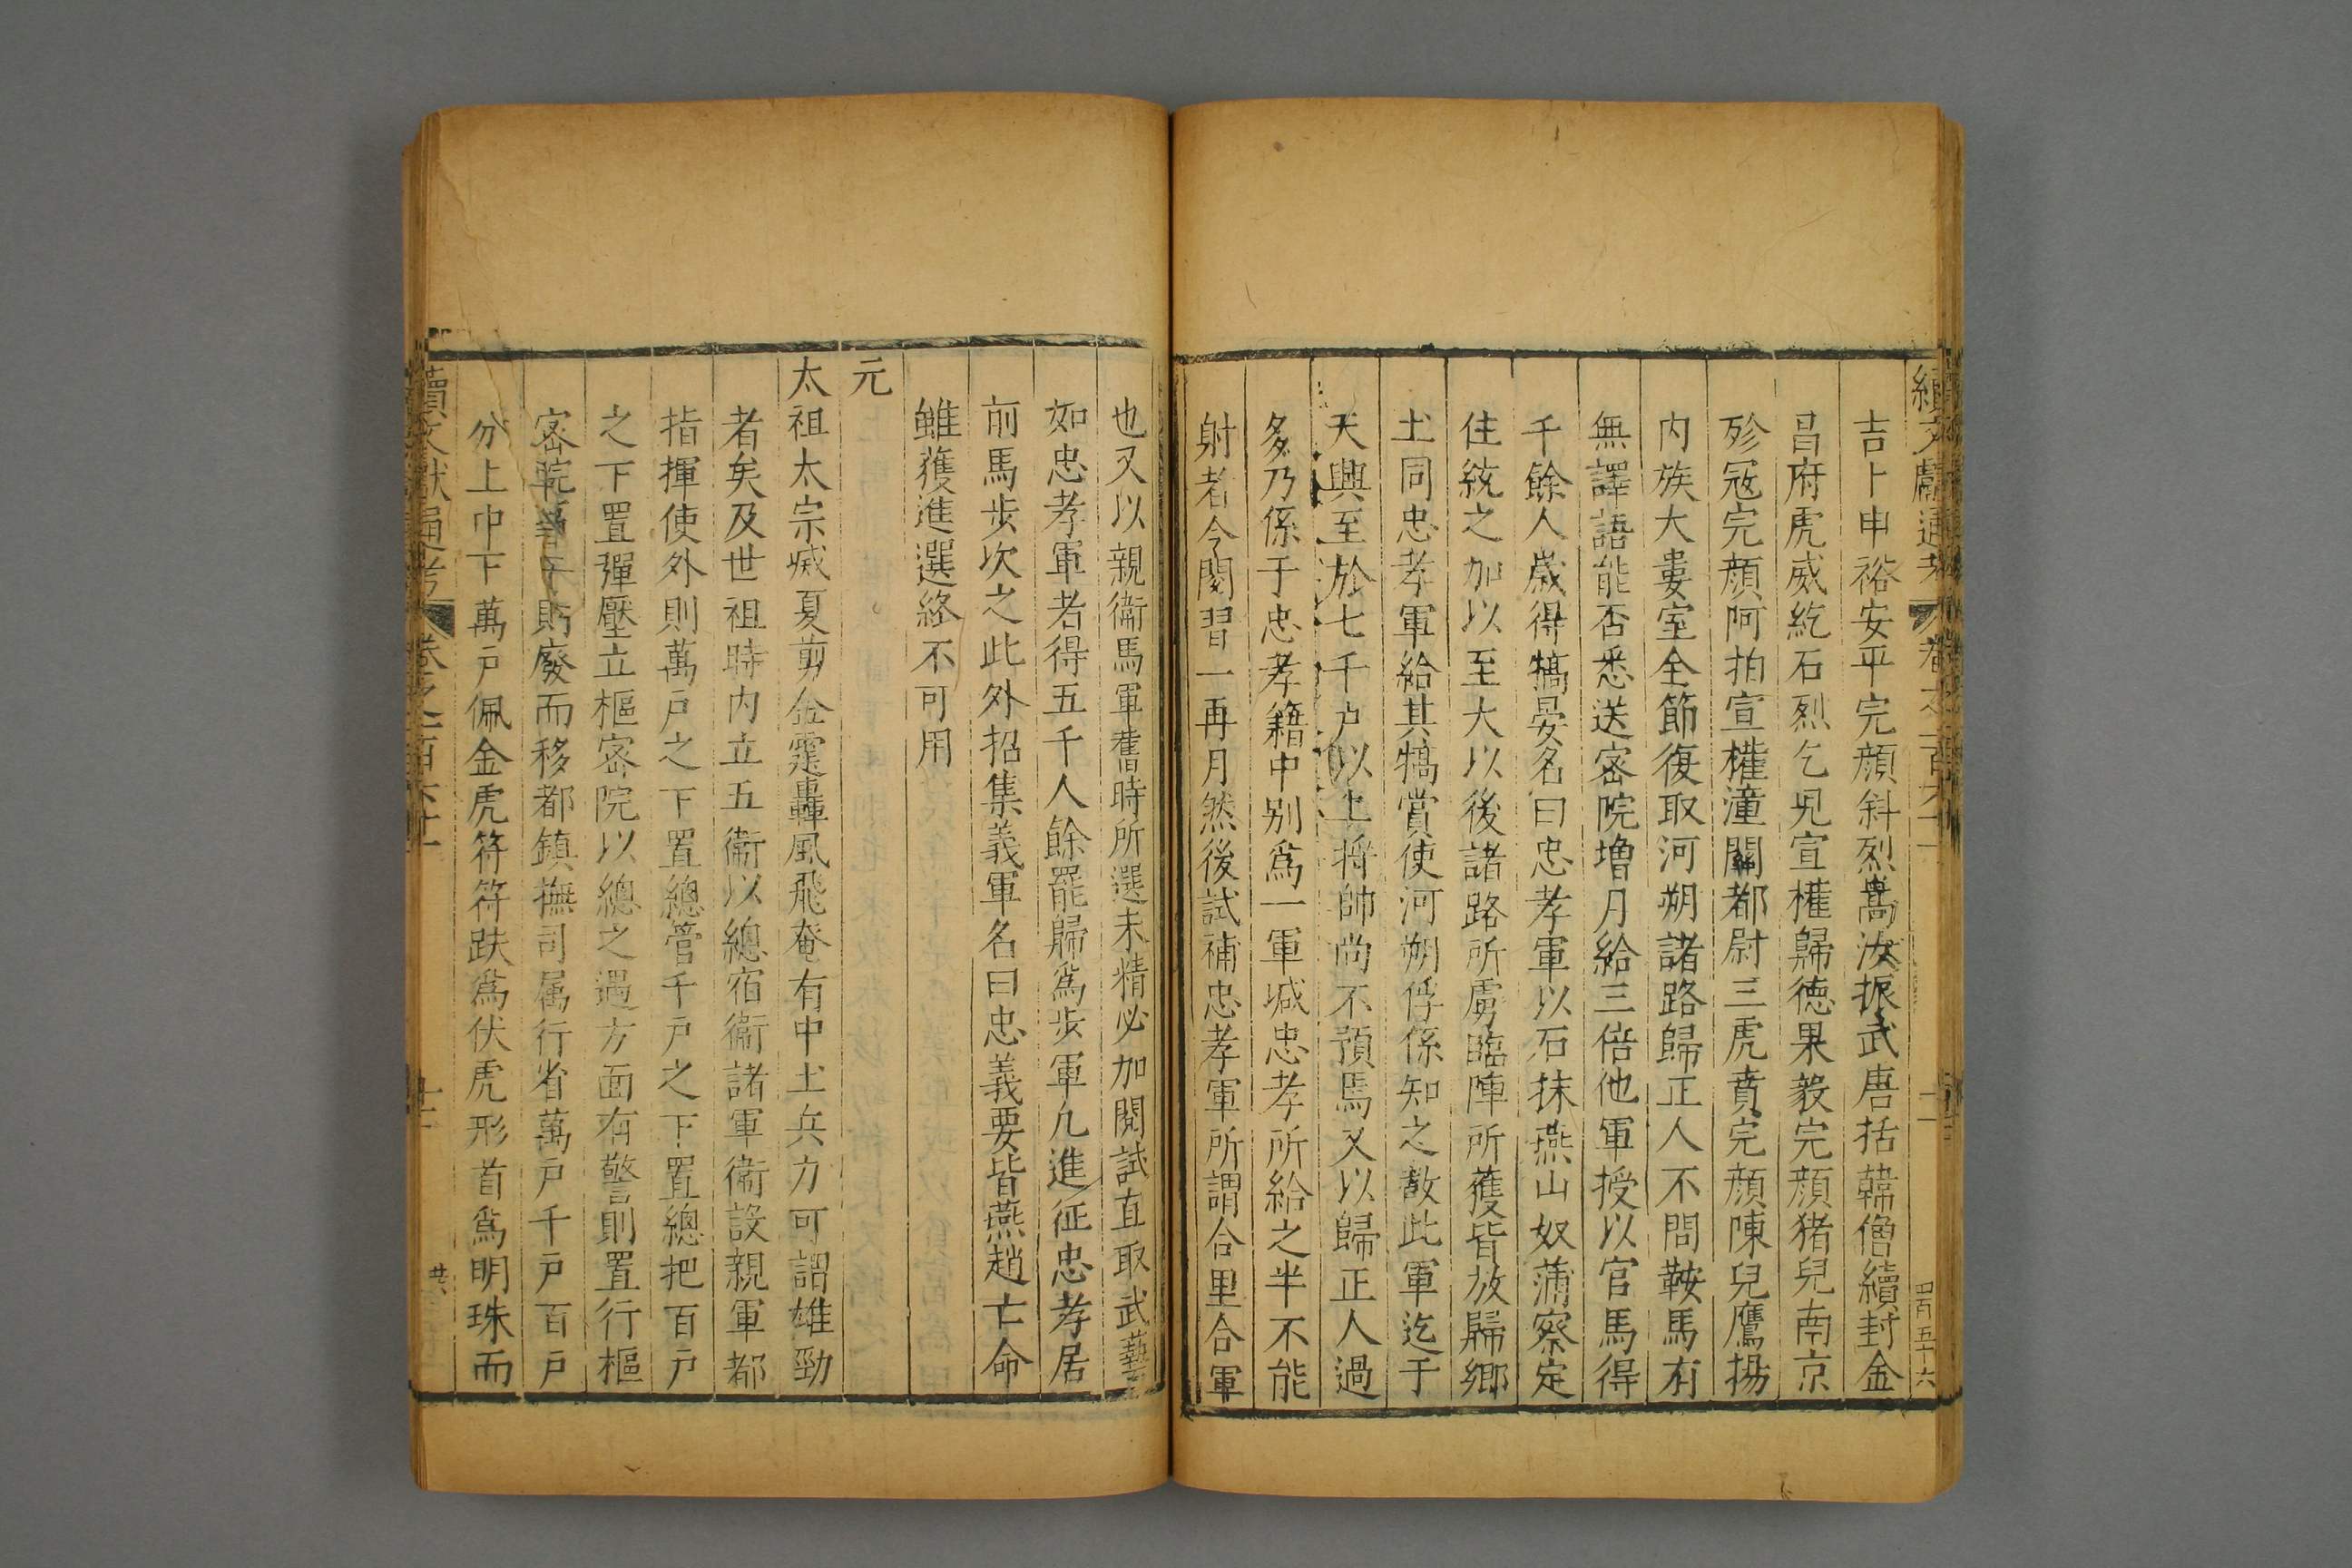 吉卜申裕安平完顔斜烈嵩汝振武唐括韓僧續封金
昌府虎威紇石烈乞兒宣權歸德果毅完顔猪兒南京
殄冦完顔阿拍宣權潼關都尉三虎賁完顔陳兒鷹揚
内族大婁室全節復取河朔諸路歸正人不問鞍馬有
無譯語能否悉送宻院増月給三倍他軍授以官馬得
千餘人歲得犒晏名曰忠孝軍以石抹燕山奴蒲察定
住統之加以至大以後諸路所虜臨陣所獲皆放歸鄉
土同忠孝軍給其犒賞使河朔俘係知之散此軍迄于
天興至於七千户以上将帥尚不預馬又以歸正人過
多乃係于忠孝籍中别爲一軍减忠孝所給之半不能
射者令閱習一再月然後試補忠孝軍所謂合里合軍
也又以親衞馬軍舊時所選未精必加閱試直取武藝
如忠孝軍者得五千人餘罷歸爲步軍凢進征忠孝居
前馬步次之此外招集義軍名曰忠義要皆燕趙亡命
雖獲進選終不可用
元
太祖太宗㓕夏剪金霆轟風飛奄有中土兵力可謂雄勁
者矣及世祖時内立五衞以總宿衞諸軍衞設親軍都
指揮使外則萬户之下置總管千户之下置總把百户
之下置彈壓立樞宻院以總之遇方面有警則置行樞
宻院事于則廢而移都鎮撫司属行省萬户千户百户
分上中下萬户佩金虎符符趺爲伏虎形首爲明珠而
續文獻通考 卷之一百六十一